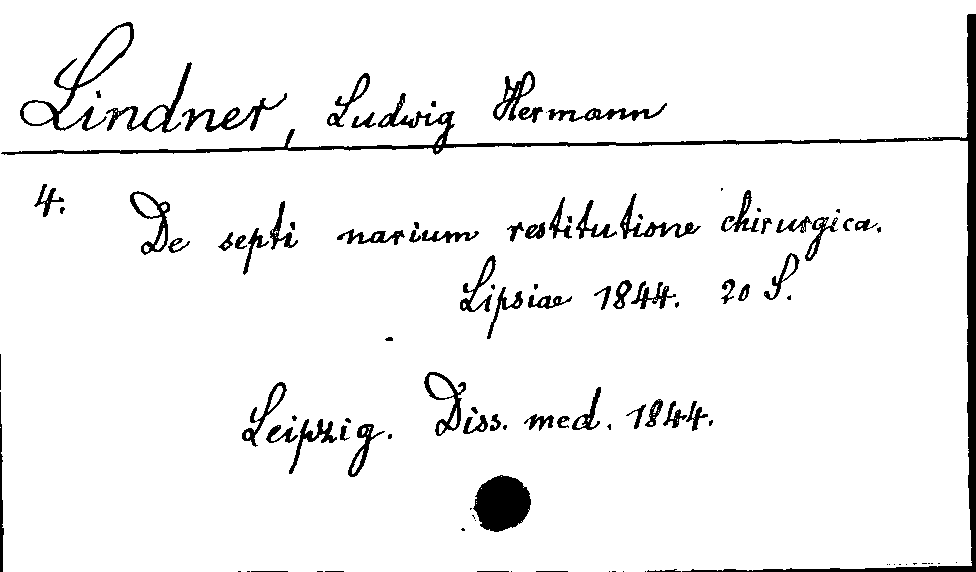 Lindner, Ludwig Hermann
4. De septi narium restitutione chirurgica.
Lipsiae 1844. 20 S.
Leipzig. Diss. med. 1844.